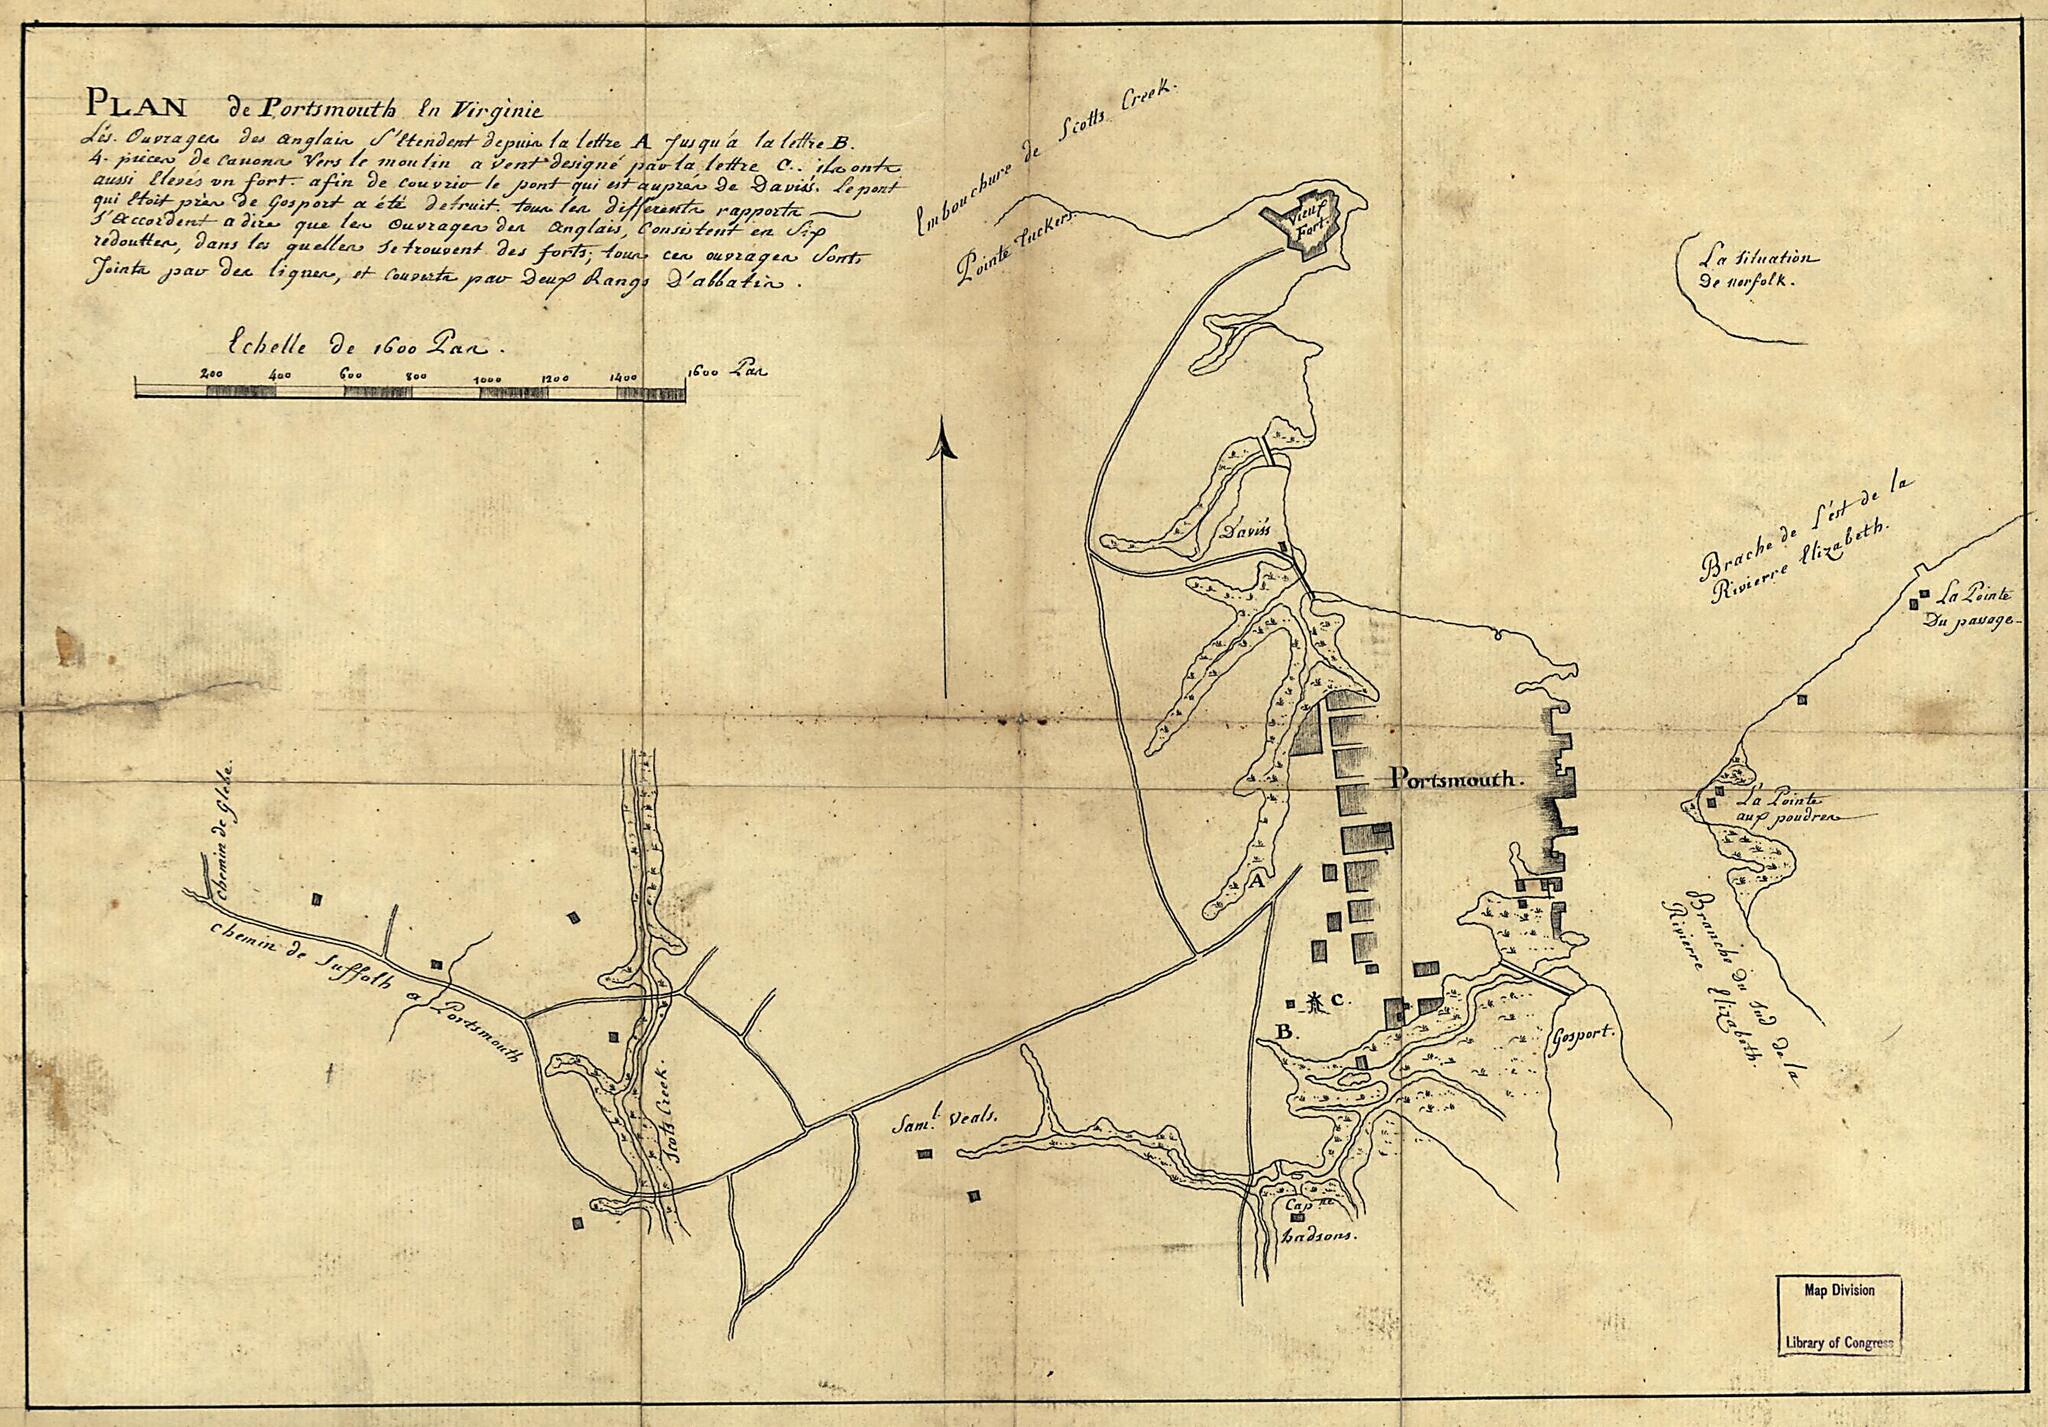 PLAN de Portsmouth En Virginie
Les Ouvrages des anglais S'Etendent depuis la lettre A Jusqu'a la lettre B.
4. pieces de canons Vers le moulin a vent designé par la lettre C.. ils onts
aussi Elevés un fort. afin de couvrir le pont qui est auprés de Daviss. Le pont
qui Etoit près de Gosport a été detruit. tous les differents rapports
S'accordent a dire que les Ouvrages des Anglais, Consistent en Six
redouttes, dans les quelles se trouvent des forts; tous ces ouvrages Sonts
Joints par des lignes, et couverts par Deux Rangs D'abbatis.
Echelle de 1600 Pas.
200 400 600 800 1000 1200 1400 1600 Pas
Embouchure de Scotts Creek.
Pointe Tuckers.
Vieux
Fort.
La Situation
De norfolk.
Daviss
Brache de l'est de la
Rivierre Elizabeth.
La Pointe
Du passage
Portsmouth.
La Pointe
aux poudres
Branche du Sud de la
Rivierre Elizabeth.
A
B.
C.
Gosport.
chemin de Glebe.
Chemin de Suffolk a Portsmouth
Scots Creek.
Saml. Veals.
Capne
hadsons.
Map Division
Library of Congress